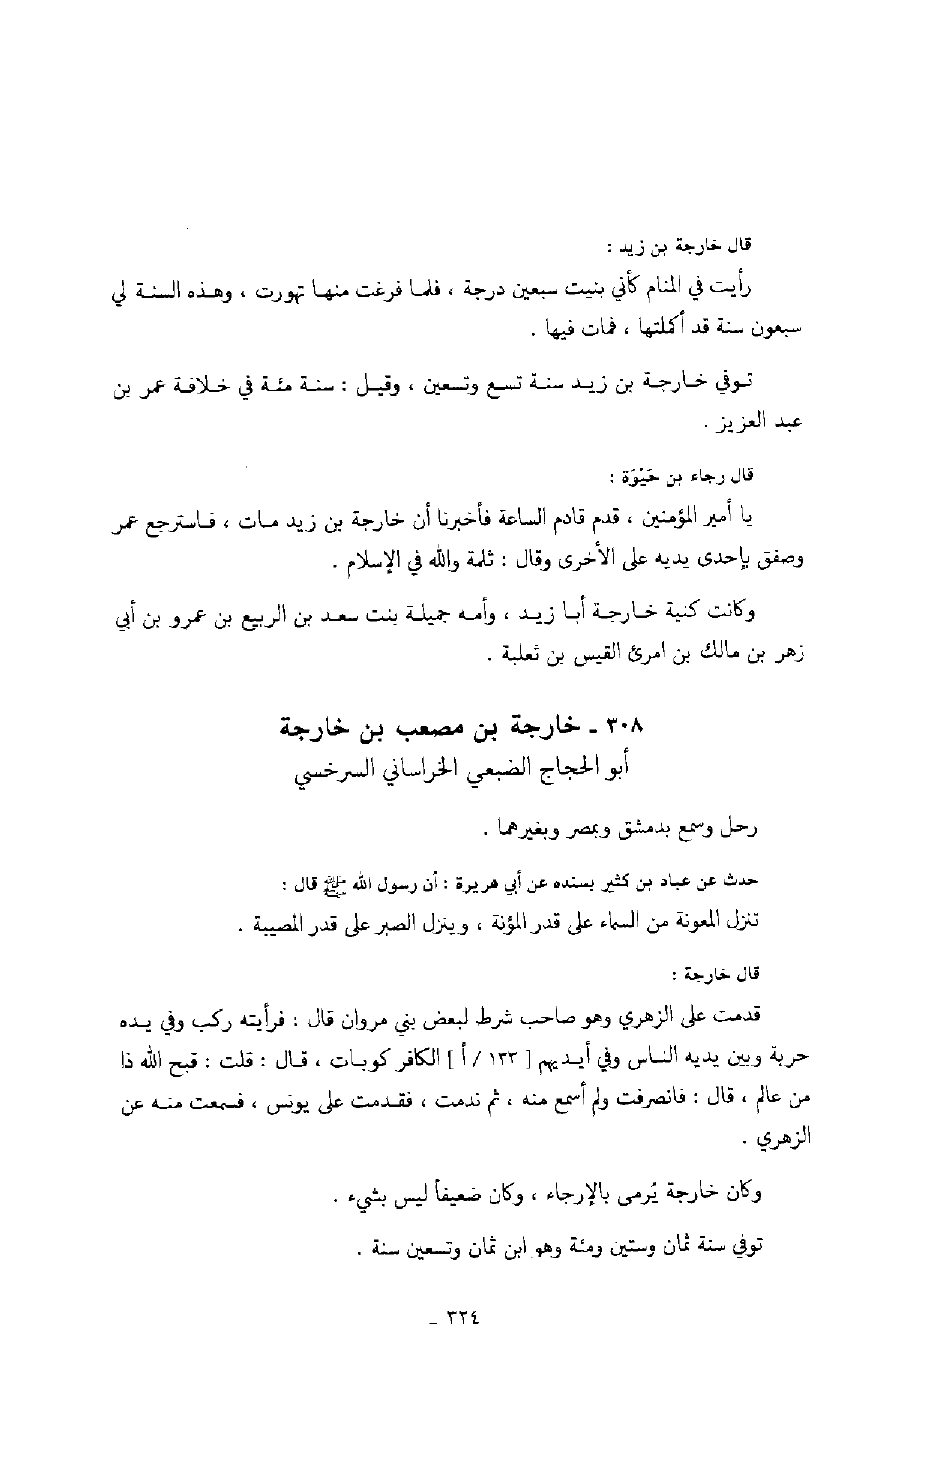 قال خارجة بن زيد :
رأيت في المنام كأني بنيت سبعين درجة ، فلما فرغت منها تهورت ، وهذه السنة لي
سبعون سنة قد أكملتها ، فمات فيها .
توفي خارجة بن زيد سنة تسع وتسعين ، وقيل : سنة مئة في خلافة عمر بن
عبد العزيز .
قال رجاء بن حَيْوَة :
يا أمير المؤمنين ، قدم قادم الساعة فأخبرنا أن خارجة بن زيد مات ، فاسترجع عمر
وصفق بإحدى يديه على الأخرى وقال : ثلمة والله في الإسلام .
وكانت كنية خارجة أبا زيد ، وأمه جميلة بنت سعد بن الربيع بن عمرو بن أبي
زهر بن مالك بن امرئ القيس بن ثعلبة .
٣٠٨ ـ خارجة بن مصعب بن خارجة
أبو الحجاج الضبعي الخراساني السرخسي
رحل وسمع بدمشق وبمصر وبغيرهما .
حدث عن عباد بن كثير بسنده عن أبي هريرة : أن رسول الله ﷺ قال :
تنزل المعونة من السماء على قدر المؤنة ، وينزل الصبر على قدر المصيبة .
قال خارجة :
قدمت على الزهري وهو صاحب شرط لبعض بني مروان قال : فرأيته ركب وفي يده
حربة وبين يديه الناس وفي أيديهم [ ١٣٣ / أ ] الكافر كوبات ، قال : قلت : قبح الله ذا
من عالم ، قال : فانصرفت ولم أسمع منه ، ثم ندمت ، فقدمت على يونس ، فسمعت منه عن
الزهري .
وكان خارجة يُرمى بالإرجاء ، وكان ضعيفاً ليس بشيء .
توفي سنة ثمان وستين ومئة وهو ابن ثمان وتسعين سنة .
٣٢٤ ـ